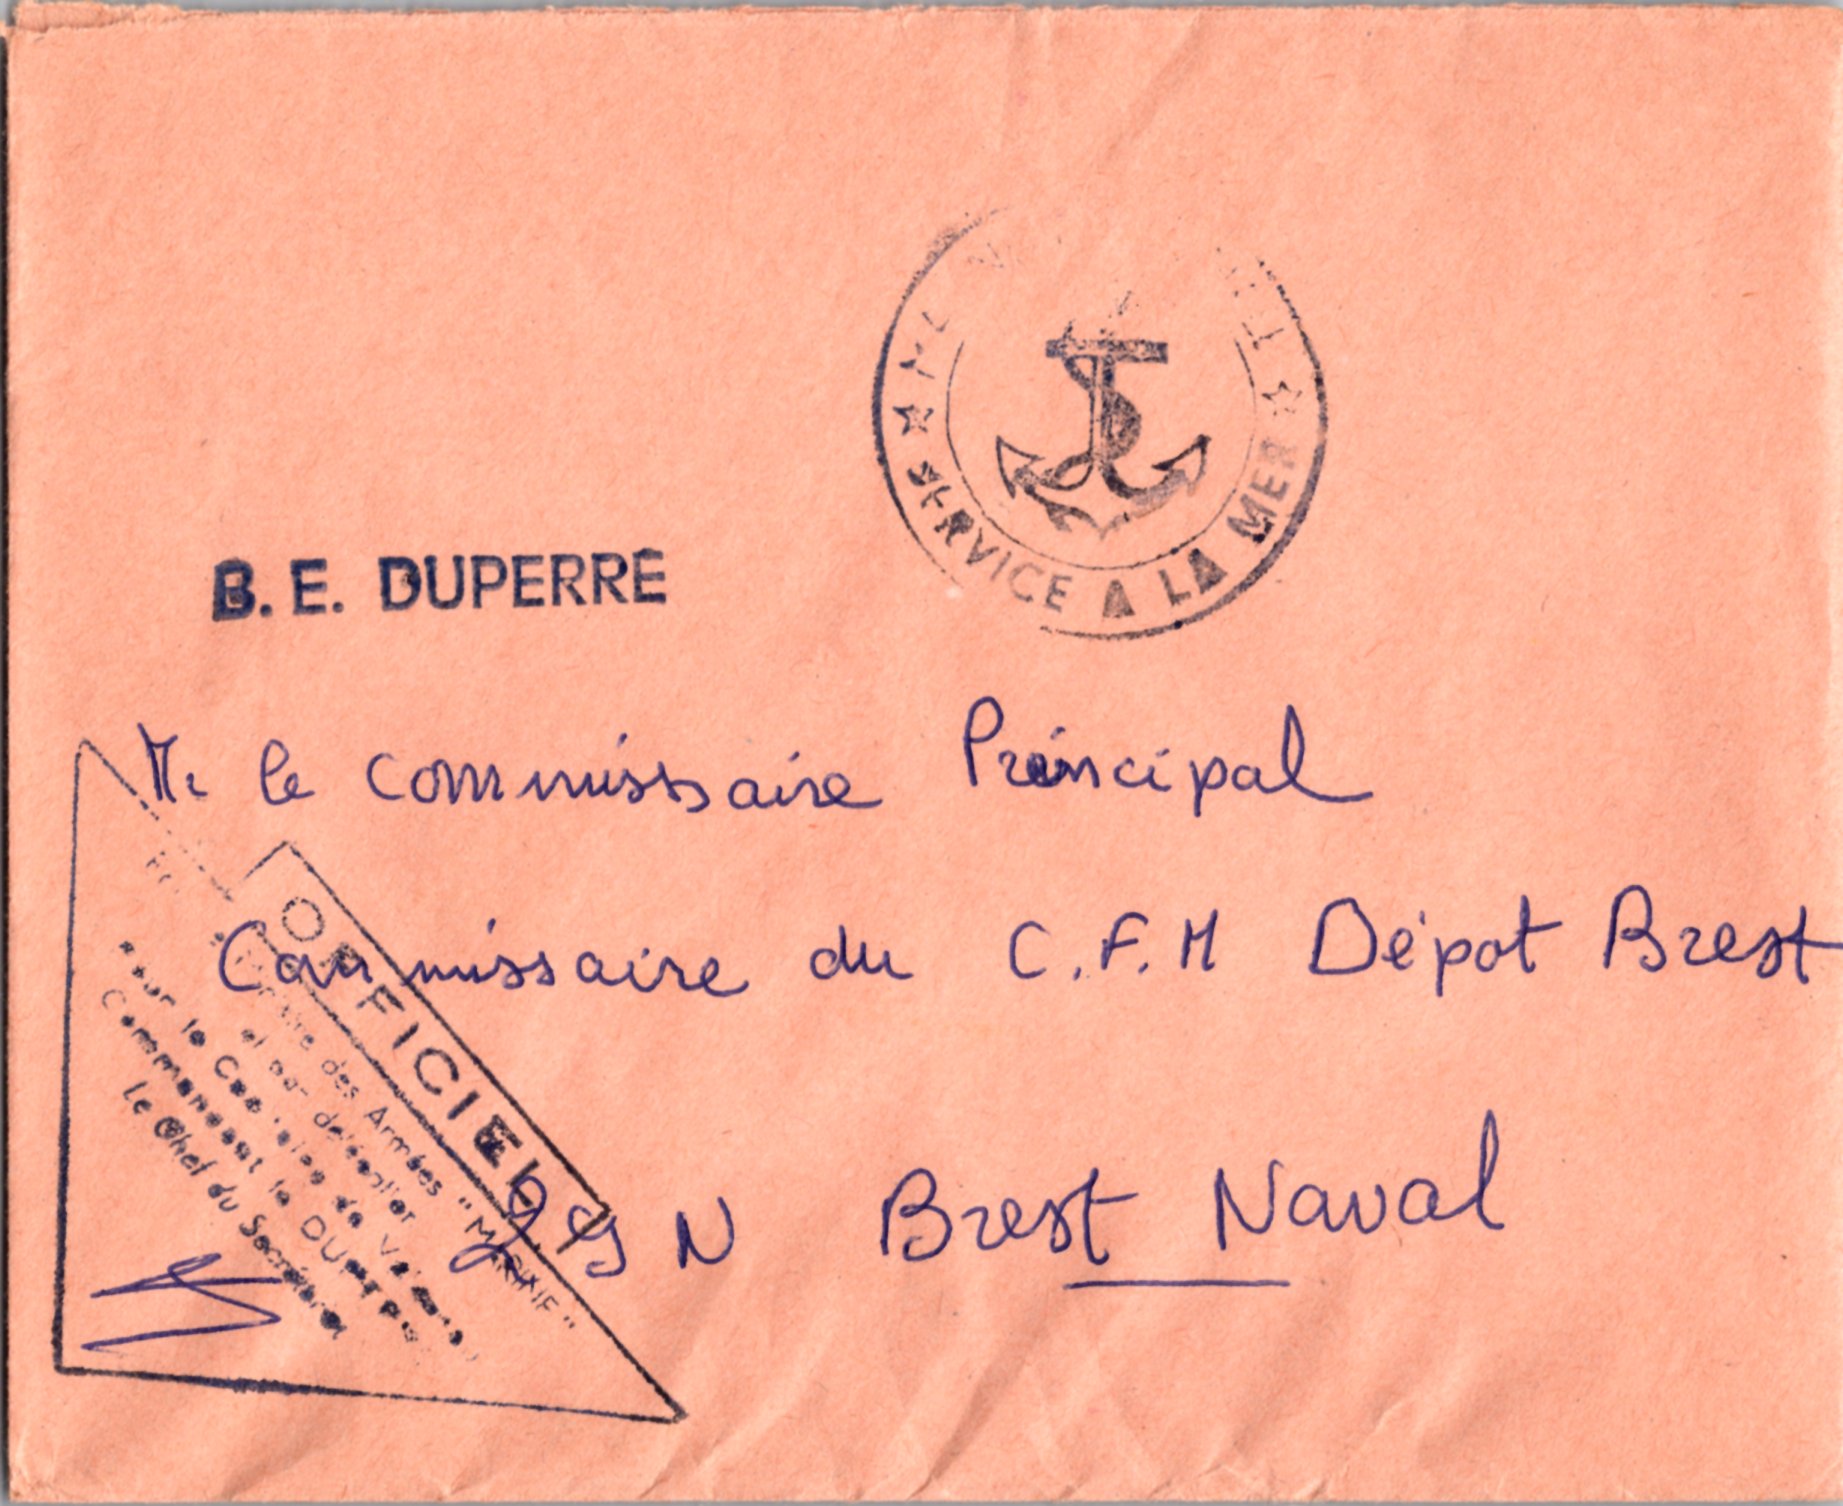 SERVICE A LA MER
B. E. DUPERRÉ
Mr le Commissaire Principal
Commissaire du C.F.M Dépot Brest
29 N Brest Naval
OFFICIEL
des Armées "MARINE"
et par délégation
Pour le Capitaine de Vaisseau
Commandant le DUPERRE
Le Chef du Secrétariat